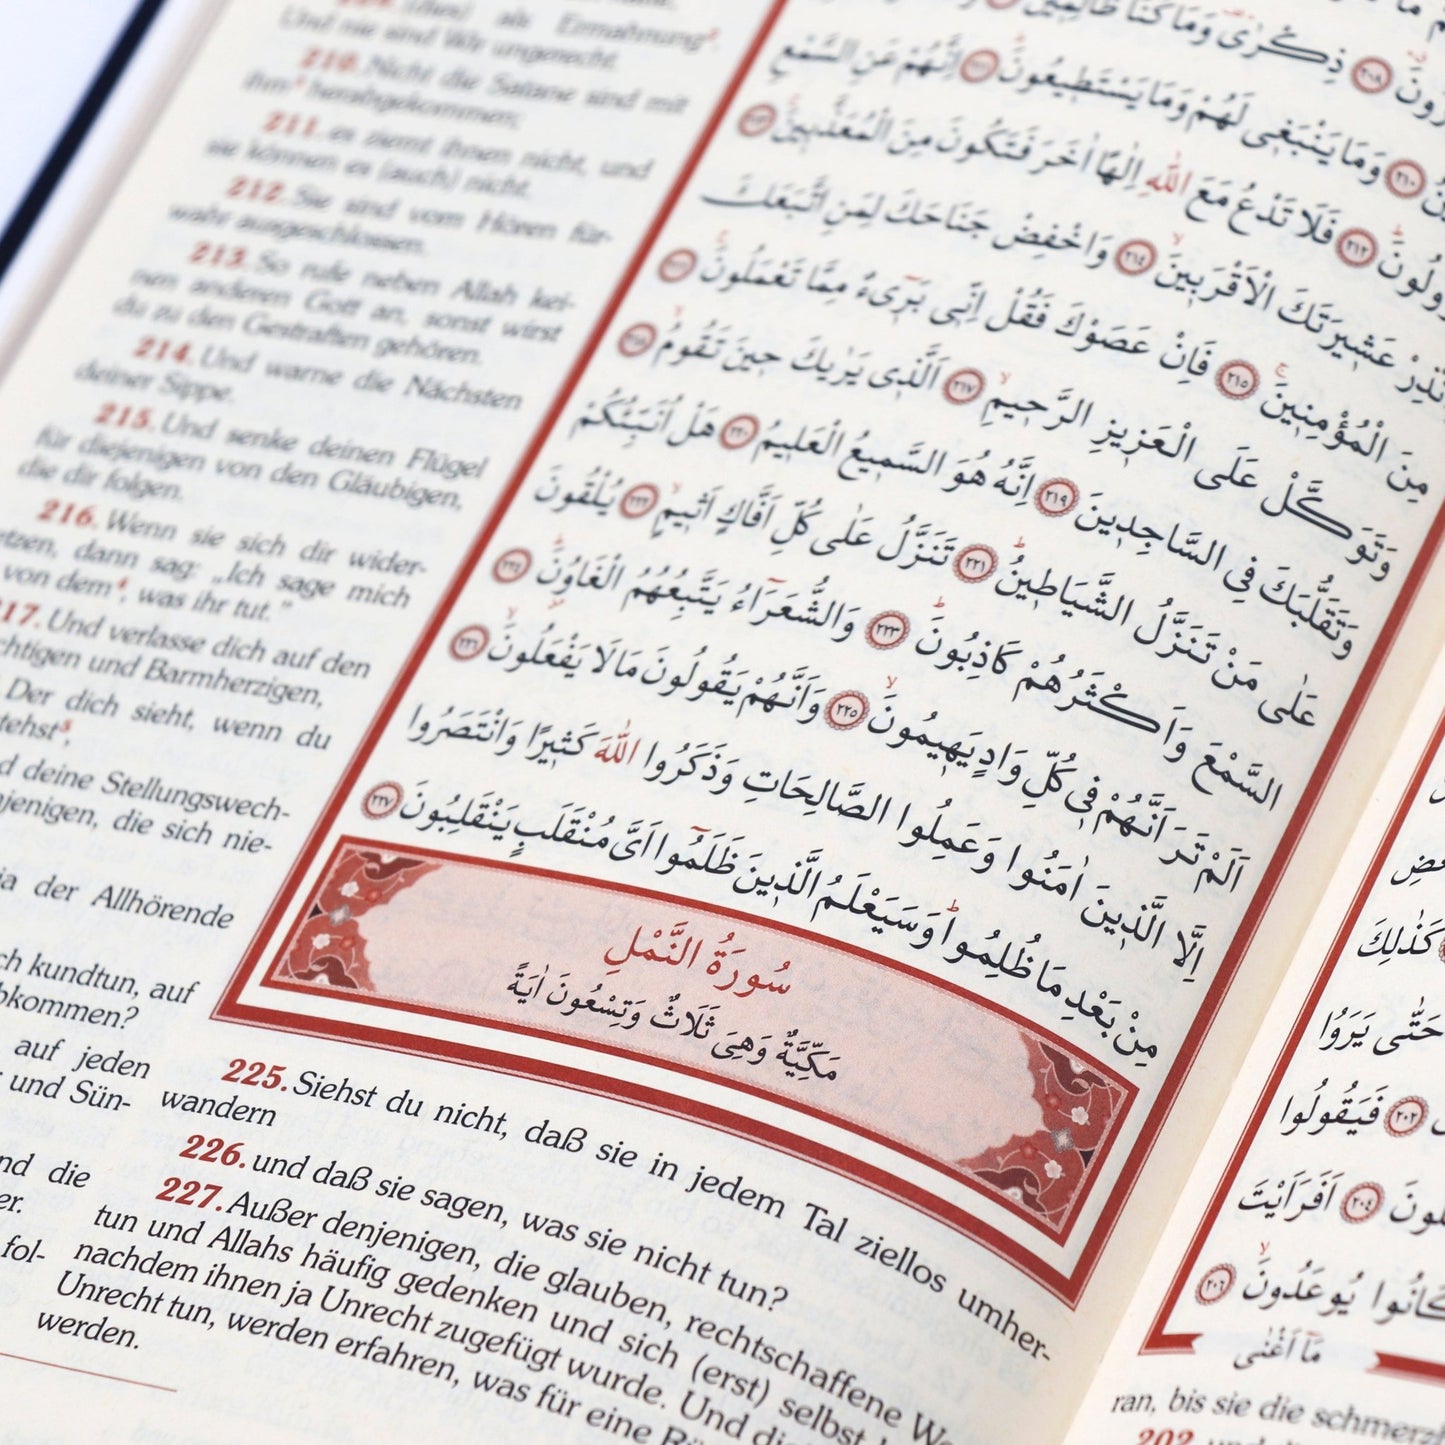 209. (dies) als Ermahnung².
Und nie sind Wir ungerecht.
210. Nicht die Satane sind mit
ihm³ herabgekommen;
211. es ziemt ihnen nicht, und
sie können es (auch) nicht.
212. Sie sind vom Hören für-
wahr ausgeschlossen.
213. So rufe neben Allah kei-
nen anderen Gott an, sonst wirst
du zu den Gestraften gehören.
214. Und warne die Nächsten
deiner Sippe.
215. Und senke deinen Flügel
für diejenigen von den Gläubigen,
die dir folgen.
216. Wenn sie sich dir wider-
etzen, dann sag: „Ich sage mich
von dem⁴, was ihr tut.“
217. Und verlasse dich auf den
chtigen und Barmherzigen,
Der dich sieht, wenn du
tehst⁵,
d deine Stellungswech-
njenigen, die sich nie-
ja der Allhörende
ch kundtun, auf
bkommen?
auf jeden
und Sün-
nd die
er.
fol-
ذِكْرٰى وَمَا كُنَّا ظَالِمٖينَ
رُونَ ﴿٢٠٨﴾
وَمَا يَنْبَغٖى لَهُمْ وَمَا يَسْتَطٖيعُونَ ﴿٢١١﴾ اِنَّهُمْ عَنِ السَّمْعِ
﴿٢١٠﴾
فَلَا تَدْعُ مَعَ اللّٰهِ اِلٰهًا اٰخَرَ فَتَكُونَ مِنَ الْمُعَذَّبٖينَ ﴿٢١٣﴾
زُولُونَ ﴿٢١٢﴾
نْذِرْ عَشٖيرَتَكَ الْاَقْرَبٖينَ ﴿٢١٤﴾ وَاخْفِضْ جَنَاحَكَ لِمَنِ اتَّبَعَكَ
مِنَ الْمُؤْمِنٖينَ ﴿٢١٥﴾ فَاِنْ عَصَوْكَ فَقُلْ اِنّٖى بَرٖٓىءٌ مِمَّا تَعْمَلُونَ ﴿٢١٦﴾
وَتَوَكَّلْ عَلَى الْعَزٖيزِ الرَّحٖيمِ ﴿٢١٧﴾ اَلَّذٖى يَرٰيكَ حٖينَ تَقُومُ ﴿٢١٨﴾
وَتَقَلُّبَكَ فِى السَّاجِدٖينَ ﴿٢١٩﴾ اِنَّهُ هُوَ السَّمٖيعُ الْعَلٖيمُ ﴿٢٢٠﴾ هَلْ اُنَبِّئُكُمْ
عَلٰى مَنْ تَنَزَّلُ الشَّيَاطٖينُ ﴿٢٢١﴾ تَنَزَّلُ عَلٰى كُلِّ اَفَّاكٍ اَثٖيمٍ ﴿٢٢٢﴾ يُلْقُونَ
السَّمْعَ وَاَكْثَرُهُمْ كَاذِبُونَ ﴿٢٢٣﴾ وَالشُّعَرَٓاءُ يَتَّبِعُهُمُ الْغَاوُنَ ﴿٢٢٤﴾
اَلَمْ تَرَ اَنَّهُمْ فٖى كُلِّ وَادٍ يَهٖيمُونَ ﴿٢٢٥﴾ وَاَنَّهُمْ يَقُولُونَ مَا لَا يَفْعَلُونَ ﴿٢٢٦﴾
اِلَّا الَّذٖينَ اٰمَنُوا وَعَمِلُوا الصَّالِحَاتِ وَذَكَرُوا اللّٰهَ كَثٖيرًا وَانْتَصَرُوا
مِنْ بَعْدِ مَا ظُلِمُوا وَسَيَعْلَمُ الَّذٖينَ ظَلَمُٓوا اَىَّ مُنْقَلَبٍ يَنْقَلِبُونَ ﴿٢٢٧﴾
سُورَةُ النَّمْلِ
مَكِّيَّةٌ وَهِىَ ثَلَاثٌ وَتِسْعُونَ اٰيَةً
225. Siehst du nicht, daß sie in jedem Tal ziellos umher-
wandern
226. und daß sie sagen, was sie nicht tun?
227. Außer denjenigen, die glauben, rechtschaffene We
tun und Allahs häufig gedenken und sich (erst) selbst
nachdem ihnen ja Unrecht zugefügt wurde. Und die
Unrecht tun, werden erfahren, was für eine Rü
werden.
كَذٰلِكَ
حَتّٰى يَرَوُا
﴿٢٠٢﴾ فَيَقُولُوا
لُونَ ﴿٢٠٤﴾ اَفَرَاَيْتَ
كَانُوا يُوعَدُونَ ﴿٢٠٦﴾
مَٓا اَغْنٰى
ran, bis sie die schmerzl
202.